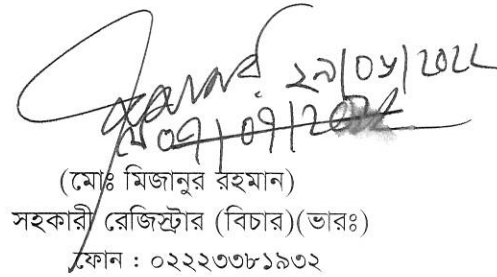 ২৯/০৬/২০২২
(মোঃ মিজানুর রহমান)
সহকারী রেজিস্ট্রার (বিচার)(ভারঃ)
ফোন : ০২২২৩৩৮১৯৩২